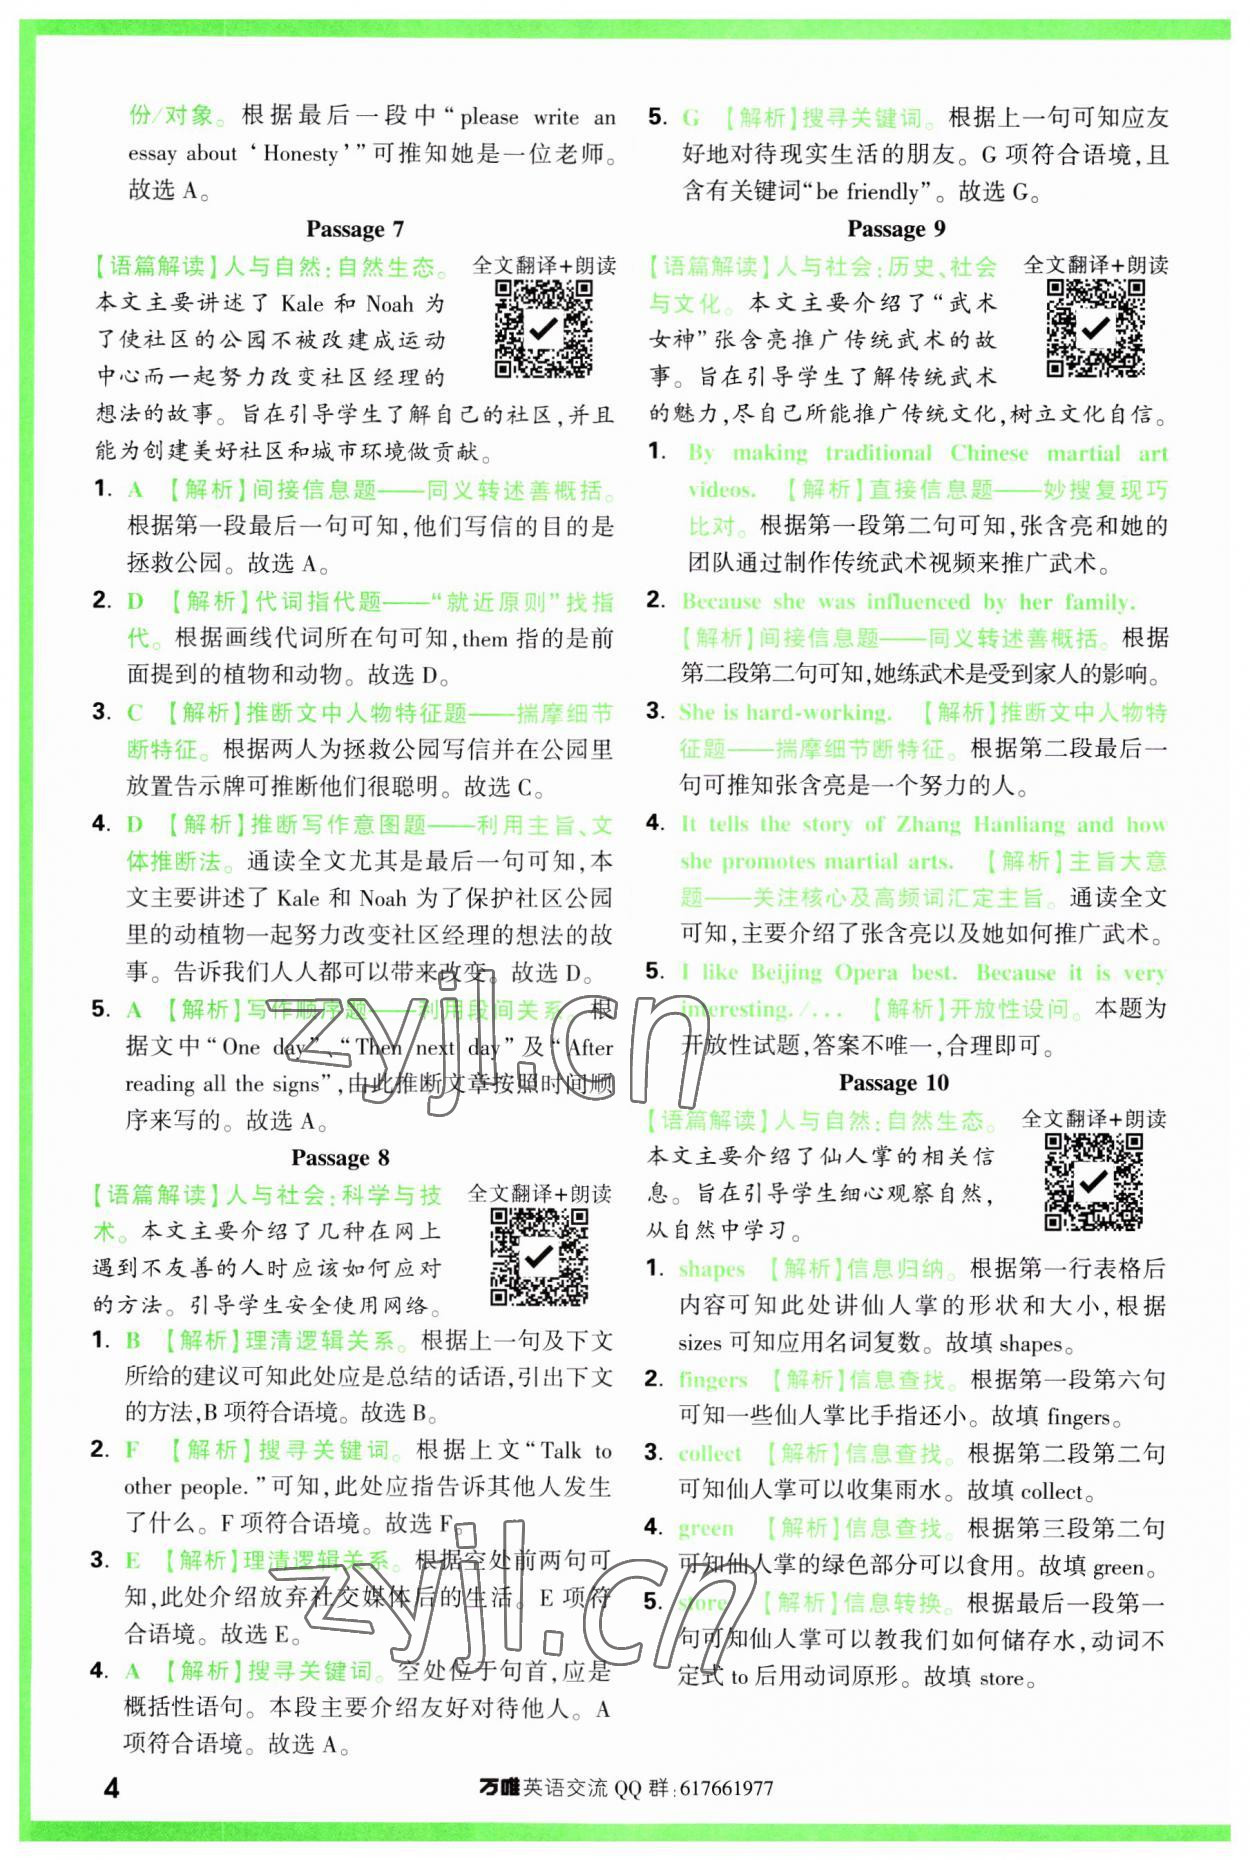 份/对象。根据最后一段中“please write an
essay about ‘Honesty’”可推知她是一位老师。
故选 A。
Passage 7
【语篇解读】人与自然:自然生态。 全文翻译+朗读
本文主要讲述了 Kale 和 Noah 为
了使社区的公园不被改建成运动
中心而一起努力改变社区经理的
想法的故事。旨在引导学生了解自己的社区,并且
能为创建美好社区和城市环境做贡献。
1. A 【解析】间接信息题——同义转述善概括。
根据第一段最后一句可知,他们写信的目的是
拯救公园。故选 A。
2. D 【解析】代词指代题——“就近原则”找指
代。根据画线代词所在句可知,them 指的是前
面提到的植物和动物。故选 D。
3. C 【解析】推断文中人物特征题——揣摩细节
断特征。根据两人为拯救公园写信并在公园里
放置告示牌可推断他们很聪明。故选 C。
4. D 【解析】推断写作意图题——利用主旨、文
体推断法。通读全文尤其是最后一句可知,本
文主要讲述了 Kale 和 Noah 为了保护社区公园
里的动植物一起努力改变社区经理的想法的故
事。告诉我们人人都可以带来改变。故选 D。
5. A 【解析】写作顺序题——利用段间关系。根
据文中“One day”、“Then next day”及“After
reading all the signs”,由此推断文章按照时间顺
序来写的。故选 A。
Passage 8
【语篇解读】人与社会:科学与技 全文翻译+朗读
术。本文主要介绍了几种在网上
遇到不友善的人时应该如何应对
的方法。引导学生安全使用网络。
1. B 【解析】理清逻辑关系。根据上一句及下文
所给的建议可知此处应是总结的话语,引出下文
的方法,B 项符合语境。故选 B。
2. F 【解析】搜寻关键词。根据上文“Talk to
other people.”可知,此处应指告诉其他人发生
了什么。F 项符合语境。故选 F。
3. E 【解析】理清逻辑关系。根据空处前两句可
知,此处介绍放弃社交媒体后的生活。E 项符
合语境。故选 E。
4. A 【解析】搜寻关键词。空处位于句首,应是
概括性语句。本段主要介绍友好对待他人。A
项符合语境。故选 A。
5. G 【解析】搜寻关键词。根据上一句可知应友
好地对待现实生活的朋友。G 项符合语境,且
含有关键词“be friendly”。故选 G。
Passage 9
【语篇解读】人与社会:历史、社会 全文翻译+朗读
与文化。本文主要介绍了“武术
女神”张含亮推广传统武术的故
事。旨在引导学生了解传统武术
的魅力,尽自己所能推广传统文化,树立文化自信。
1. By making traditional Chinese martial art
videos. 【解析】直接信息题——妙搜复现巧
比对。根据第一段第二句可知,张含亮和她的
团队通过制作传统武术视频来推广武术。
2. Because she was influenced by her family.
【解析】间接信息题——同义转述善概括。根据
第二段第二句可知,她练武术是受到家人的影响。
3. She is hard-working. 【解析】推断文中人物特
征题——揣摩细节断特征。根据第二段最后一
句可推知张含亮是一个努力的人。
4. It tells the story of Zhang Hanliang and how
she promotes martial arts. 【解析】主旨大意
题——关注核心及高频词汇定主旨。通读全文
可知,主要介绍了张含亮以及她如何推广武术。
5. I like Beijing Opera best. Because it is very
interesting. /... 【解析】开放性设问。本题为
开放性试题,答案不唯一,合理即可。
Passage 10
【语篇解读】人与自然:自然生态。 全文翻译+朗读
本文主要介绍了仙人掌的相关信
息。旨在引导学生细心观察自然,
从自然中学习。
1. shapes 【解析】信息归纳。根据第一行表格后
内容可知此处讲仙人掌的形状和大小,根据
sizes 可知应用名词复数。故填 shapes。
2. fingers 【解析】信息查找。根据第一段第六句
可知一些仙人掌比手指还小。故填 fingers。
3. collect 【解析】信息查找。根据第二段第二句
可知仙人掌可以收集雨水。故填 collect。
4. green 【解析】信息查找。根据第三段第二句
可知仙人掌的绿色部分可以食用。故填 green。
5. store 【解析】信息转换。根据最后一段第一
句可知仙人掌可以教我们如何储存水,动词不
定式 to 后用动词原形。故填 store。
zyjl.cn
zyjl.cn
4 万唯英语交流 QQ 群:617661977